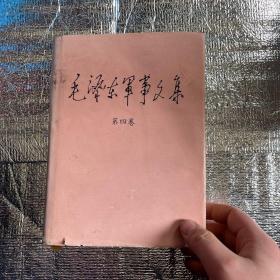 毛泽东軍事文集
第四卷